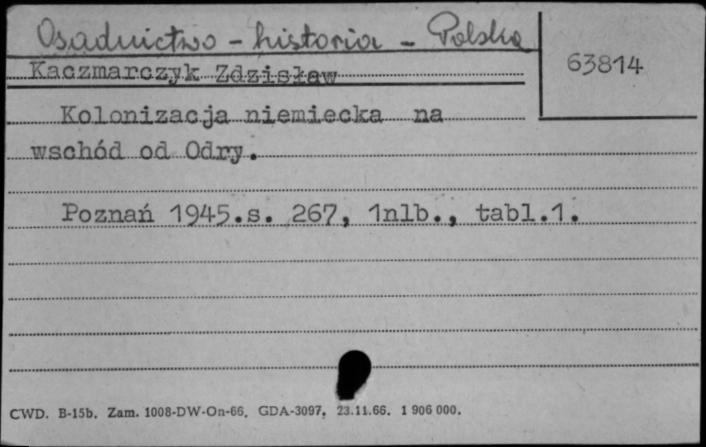 Osadnictwo - historia - Polska
63814
Kaczmarczyk Zdzisław
Kolonizacja niemiecka na
wschód od Odry.
Poznań 1945.s. 267, 1nlb., tabl.1.
CWD. B-15b. Zam. 1008-DW-On-66. GDA-3097. 23.11.66. 1 906 000.